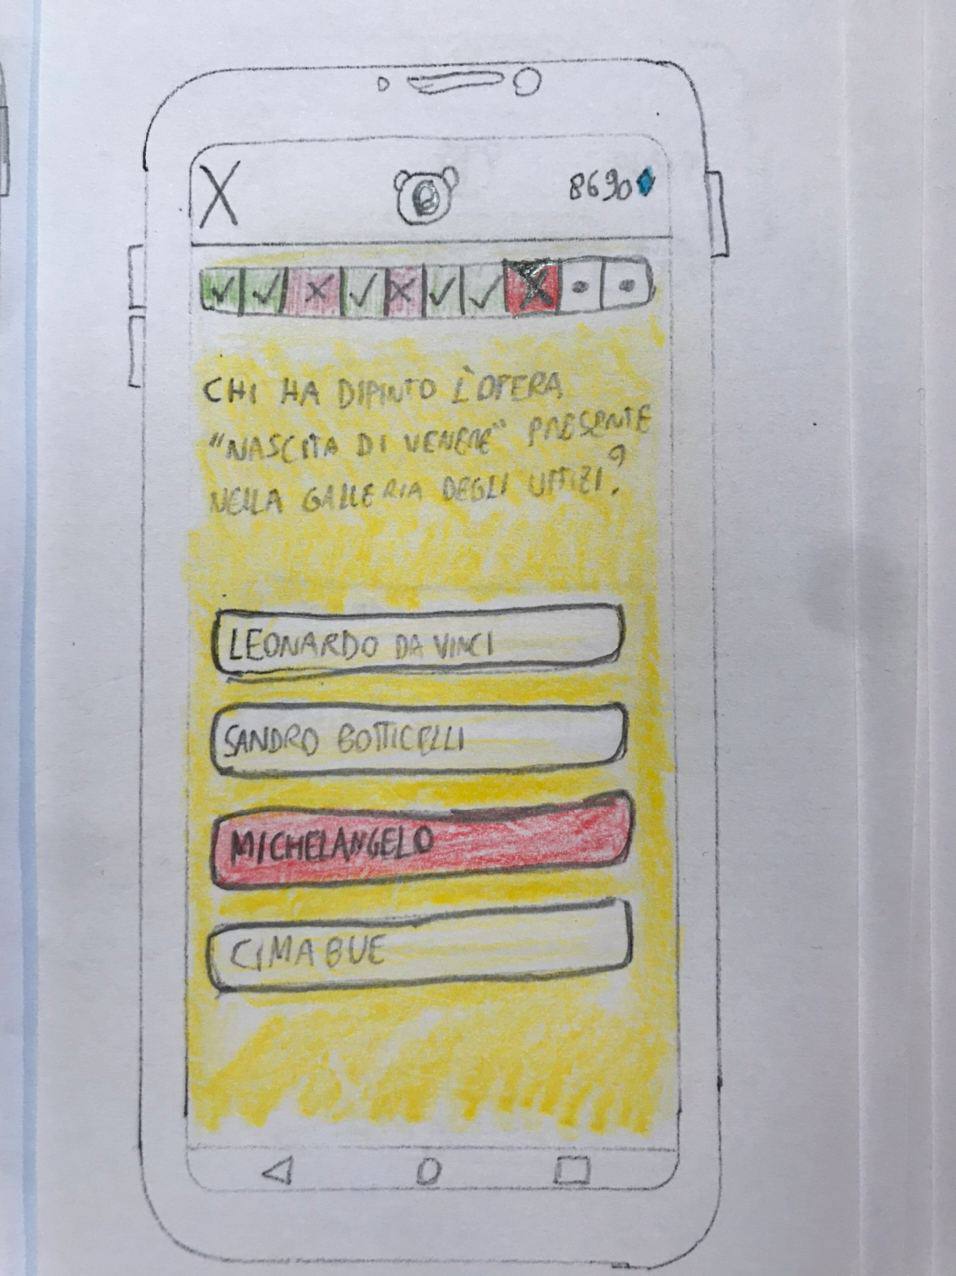 X
8690
CHI HA DIPINTO L'OPERA
"NASCITA DI VENERE" PRESENTE
NELLA GALLERIA DEGLI UFFIZI?
LEONARDO DA VINCI
SANDRO BOTTICELLI
MICHELANGELO
CIMABUE